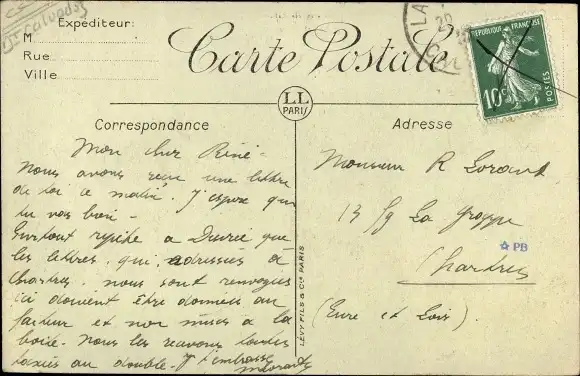 Calvados
Expéditeur:
M
Rue
Ville
Carte Postale
LA
REPUBLIQUE FRANÇAISE
10c
POSTES
LL
PARIS
Correspondance
Adresse
Mon cher René -
Nous avons reçu une lettre
de toi ce matin. J'espère que
tu vas bien -
Surtout répète a que
les lettres, qui adressées à
Chartres, nous sont renvoyées
ici doivent être données au
facteur et non mises à la
boite. Nous les recevons toutes
taxées au double. Je t'embrasse
Monsieur R Lorant
13 fg La Grappe
Chartres
(Eure et Loir)
PB
LÉVY FILS & Cie PARIS